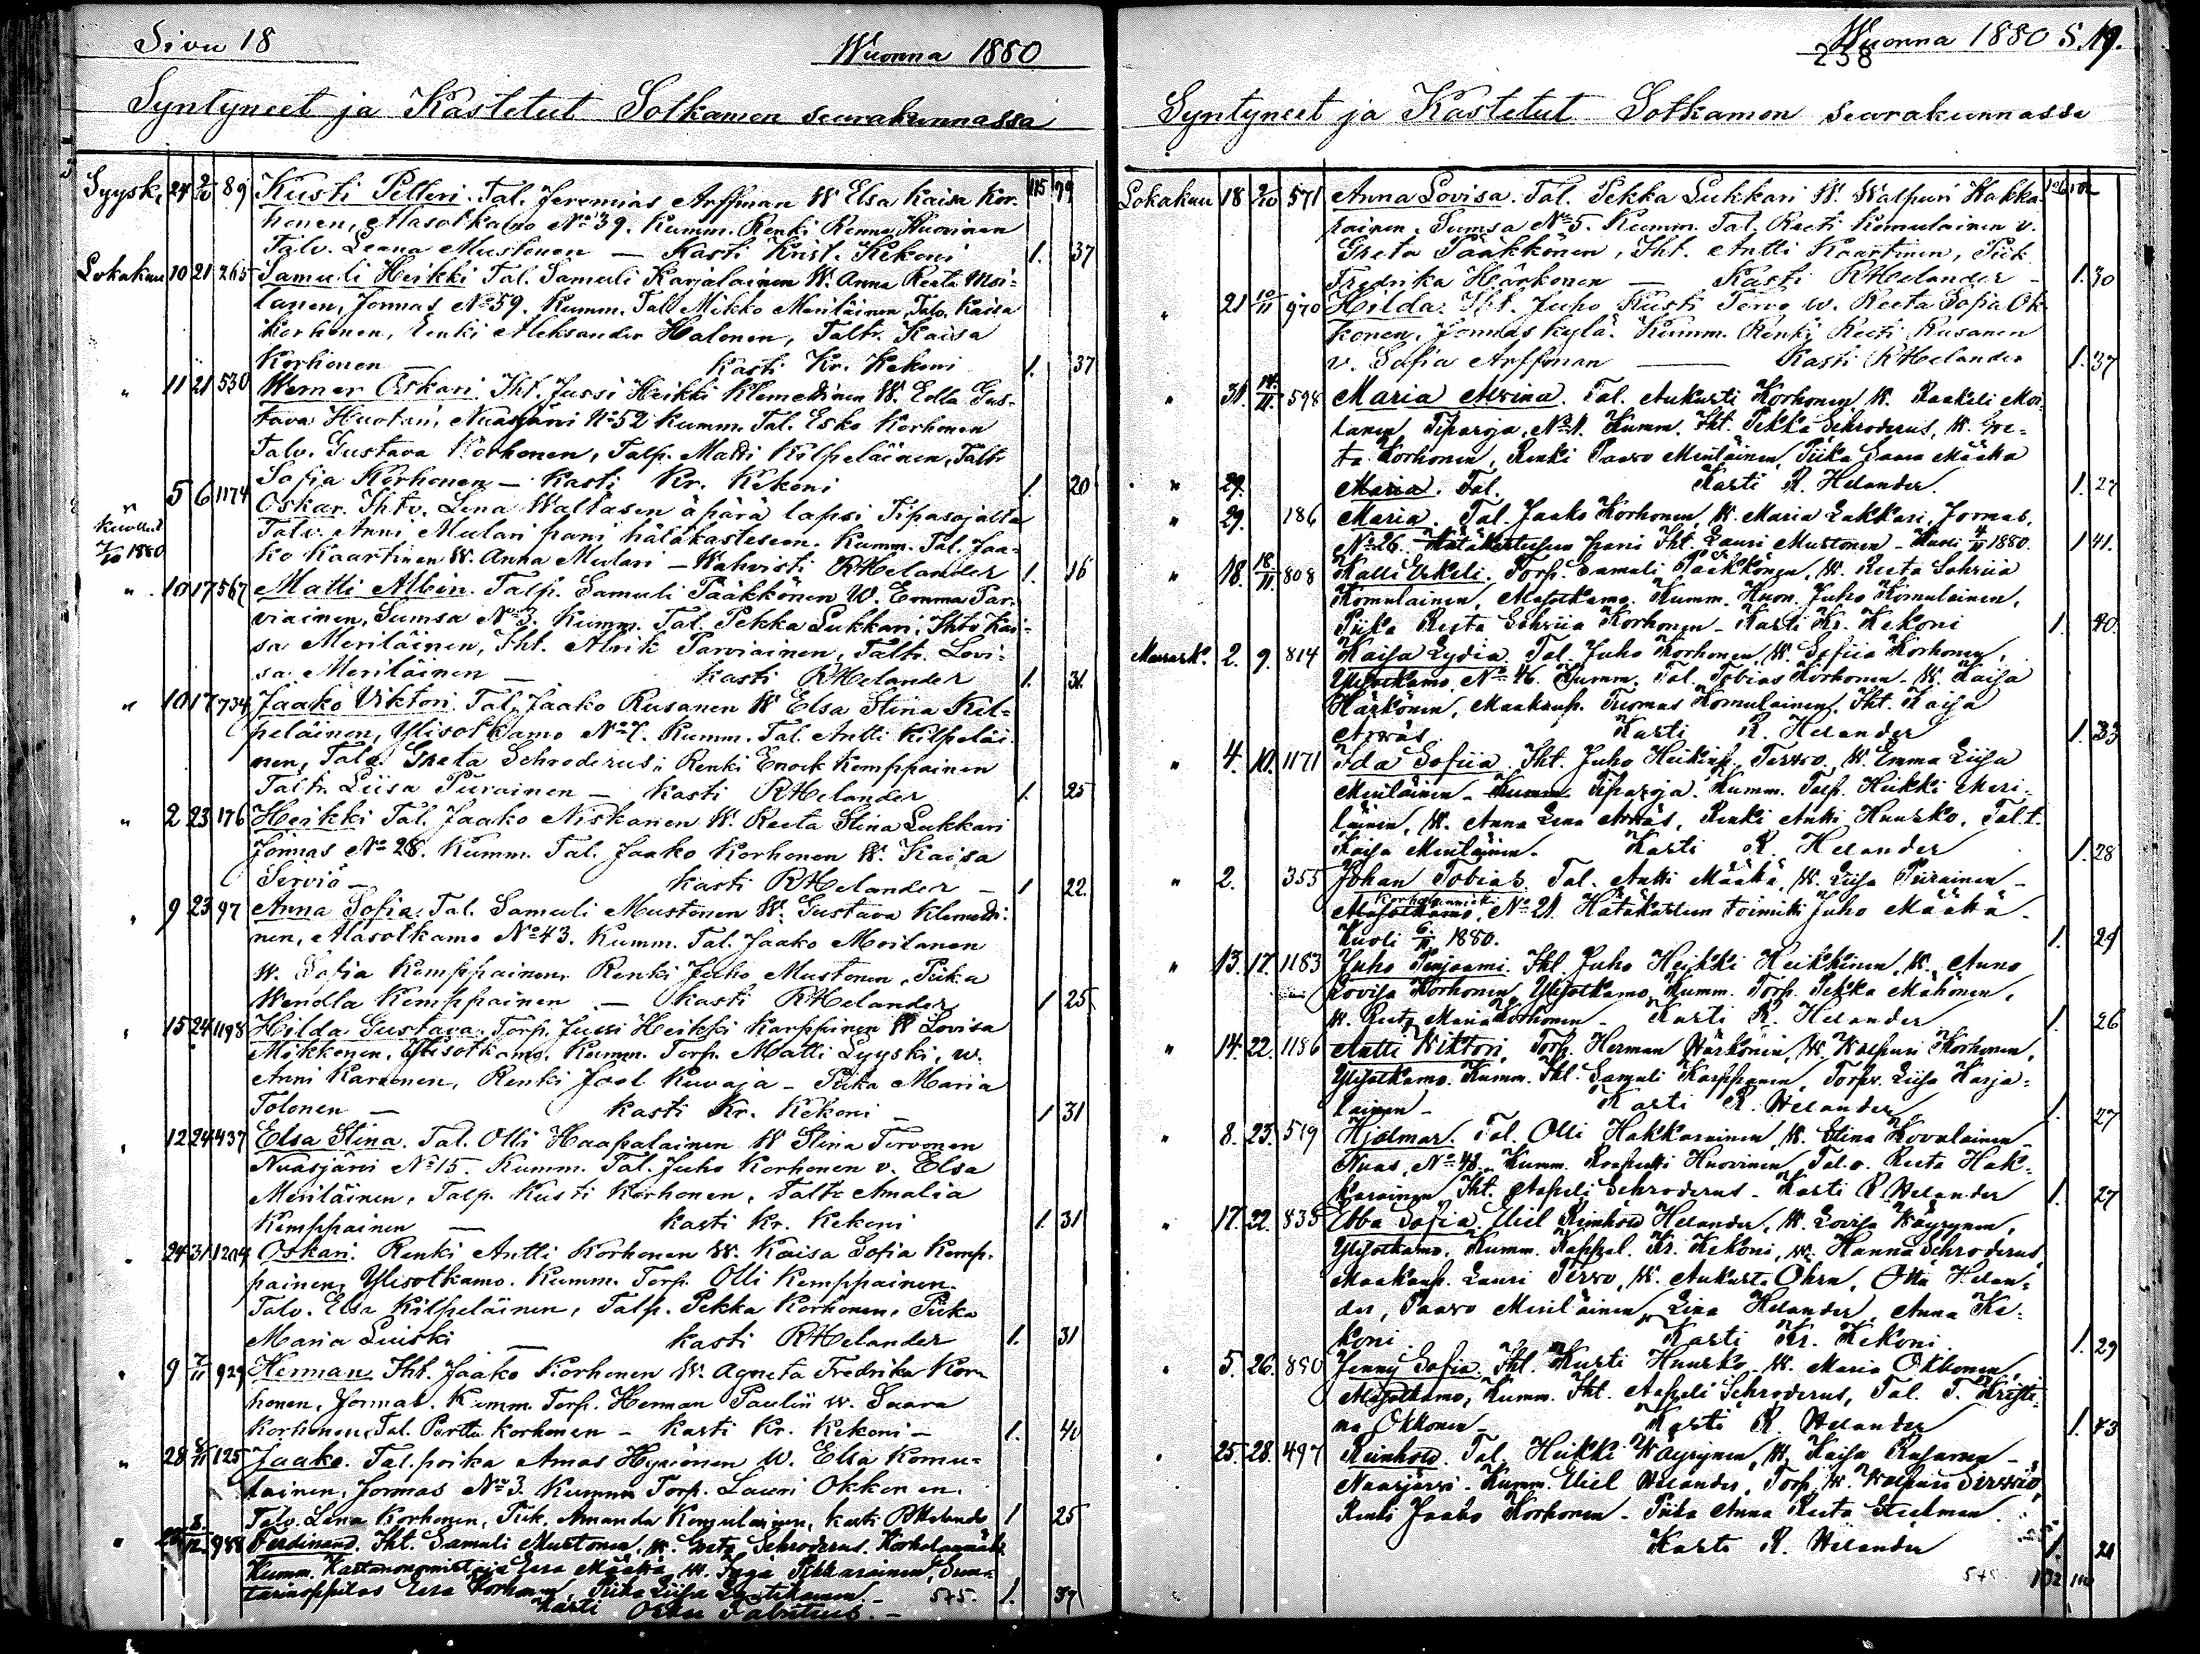 Sivu 18
Wuonna 1880
Syntyneet ja Kastetut Sotkamon seurakunnassa
115 99
Syysk. 24 2/10 89 Kusti Petteri. Tal. Jeremias Arffman W. Elsa Kaisa Kor-
honen, Alasotkamo No 39. Kumm. Renki Huovinen
Talv. Leena Mustonen — Kasti Krist. Kekoni 1. 37
Lokakuu 10 21 265 Samuli Heikki Tal. Samuli Karjalainen W. Anna Reeta Moi-
lanen, Jormas No 59. Kumm. Tal. Mikko Meriläinen, Talv. Kaisa
Korhonen, Renki Aleksander Halonen, Taltr. Kaisa
Korhonen Kasti Kr. Kekoni 1. 37
" 11 21 530 Werner Oskari. Iht. Jussi Heikki Klemettinen W. Edla Gus-
tava Huotari, Nuasjärvi No 52 Kumm. Tal. Esko Korhonen
Talv. Gustava Korhonen, Talp. Matti Kilpeläinen, Taltr.
Sofia Korhonen — Kasti Kr. Kekoni 1. 20
" 5 6 1174 Oskar. Ihtv. Lena Waltasen äpärä lapsi Tipasojalta
kuollut 7/10 1880
Talv. Anni Mulari pani hätäkasteseen. Kumm. Tal. Jaa-
ko Kaartinen W. Anna Mulari — Wahvisti RHelander 1. 16
" 10 17 567 Matti Albin. Talp. Samuli Pääkkönen W. Emma Par-
viainen, Sumsa No 3. Kumm. Tal. Pekka Lukkari, Ihtv. Kai-
sa Meriläinen, Iht. Alrik Parviainen, Taltr. Lovi-
sa Meriläinen — Kasti RHelander 1. 31
" 10 17 734 Jaako Viktori. Tal. Jaako Rusanen W Elsa Stina Kil-
peläinen, Ylisotkamo No 7. Kumm. Tal. Antti Kilpeläi-
nen, Talv. Greta Schroderus, Renki Enock Kemppainen
Taltr. Liisa Piirainen — Kasti RHelander 1. 25
" 2 23 176 Heikki Tal. Jaako Niskanen W. Reeta Stina Lukkari
Jormas No 28. Kumm. Tal. Jaako Korhonen W. Kaisa
Serviö — Kasti RHelander — 1 22.
" 9 23 97 Anna Sofia. Tal. Samuli Mustonen W. Gustava Klemetti-
nen, Alasotkamo No 43. Kumm. Tal. Jaako Moilanen
W. Sofia Kemppainen, Renki Juho Mustonen, Piika
Wendla Kemppainen — Kasti RHelander 1 25
" 15 24 1198 Hilda Gustava. Torp. Jussi Heikki Karppinen W Lovisa
Mikkonen, Ylisotkamo. Kumm. Torp. Matti Lyyski, w.
Anni Karvonen, Renki Joel Kuvaja — Piika Maria
Tolonen — Kasti Kr. Kekoni — 1 31
" 12 24 437 Elsa Stina. Tal. Olli Haapalainen W Stina Tervonen
Nuasjärvi No 15. Kumm. Tal. Juho Korhonen v. Elsa
Meriläinen, Talp. Kusti Korhonen, Taltr. Amalia
Kemppainen — Kasti Kr. Kekoni 1. 31
" 24 31 1204 Oskari. Renki Antti Korhonen W. Kaisa Sofia Kemp-
painen, Ylisotkamo. Kumm. Torp. Olli Kemppainen
Talv. Elsa Kilpeläinen, Talp. Pekka Korhonen, Piika
Maria Luiski — Kasti RHelander 1. 31
" 9 7/11 929 Herman. Iht. Jaako Korhonen W. Agneta Fredrika Kor-
honen, Jormas. Kumm. Torp. Herman Paulin w. Saara
Korhonen, Tal. Pertti Korhonen — Kasti Kr. Kekoni — 1. 40
" 28 125 Jaako. Tal. poika Amas Hyvönen W. Elsa Komu-
lainen, Jormas No 3. Kumm. Torp. Lauri Okkonen.
Talv. Lena Korhonen, Piik. Amanda Komulainen, Kasti RHelander 1 25
" 988 Ferdinand. Iht. Samuli Mustonen, W. Greta Schroderus. Korholanmäki
Kumm. Kartanonomistaja Esra Määttä, W. Pikkarainen,
Esra Korhonen, Piika Liisa — 575. 1. 39
Kasti Oskar —
Wuonna 1880 S. 19.
238
Syntyneet ja Kastetut Sotkamon seurakunnassa
Lokakuu 18 2/10 571 Anna Lovisa. Tal. Pekka Lukkari W. Walpuri Hakka-
rainen, Sumsa No 5. Kumm. Tal. Reeti Komulainen v.
Greta Pääkkönen, Iht. Antti Kaartinen, Piik.
Fredrika Härkonen — Kasti RHelander — 1. 30
" 21 10/11 970 Hilda. Iht. Juho Kusti Tervo w. Reeta Sofia Ok-
konen, Jormas kylä. Kumm. Renki Reeti Rusanen
v. Sofia Arffman — Kasti RHelander 1. 37
" 31. 14/11 598 Maria Alvina. Tal. Aukusti Korhonen W. Raakeli Moi-
lanen, Tipasoja, No 1. Kumm. Iht. Pekka Schroderus, W. Gre-
ta Korhonen, Renki Paavo Meriläinen, Piika Saara Määttä
" 29. Maria. Tal. Kasti R. Helander. 1. 27
" 29. 186 Maria. Tal. Jaako Korhonen, W. Maria Lukkari, Jormas,
No 26. Hätäkasteseen pani Iht. Lauri Mustonen — Kuoli 4/11 1880. 1 41.
" 18. 18/11 808 Kalli Torp. Samuli Pääkkönen, W. Reeta Sohviia
Komulainen, Alasotkamo. Kumm. Juho Komulainen,
Piika Reeta Sohviia Korhonen — Kasti Kr. Kekoni 1. 40.
Marrask. 2. 9. 814 Kaisa Lydia. Tal. Juho Korhonen, W. Sofiia Korhonen,
Ylisotkamo, No 46. Kumm. Tal. Tobias Korhonen — W. Kaisa
Härkönen, Maakaup. Tuomas Komulainen, Iht. Kaisa
Kasti R. Helander 1. 33
" 4. 10. 1171 Ida Sofiia. Iht. Juho Heikinp. Tervo, W. Emma Liisa
Meriläinen — Kumm. Tipasoja. Kumm. Torp. Heikki Meri-
läinen, W. Anna Lena Renki Antti Huusko, Tal.t.
Kaisa Meriläinen — Kasti R. Helander 1. 28
" 2. 355 Johan Tobias. Tal. Antti Määttä, W. Liisa Piirainen —
Korholanmäki
Alasotkamo, No 21. Hätäkasteen toimitti Juho Määttä —
Kuoli 6/11 1880. 1. 29
" 13. 17. 1183 Juho Penjaami. Iht. Juho Heikki Heikkinen, W. Anna
Lovisa Korhonen, Ylisotkamo, Kumm. Torp. Pekka Mähönen,
W. Reeta Maria Korhonen — Kasti R. Helander 1. 26
" 14. 22. 1186 Antti Wiktori. Torp. Herman Härkönen, W. Walpuri Korhonen,
Ylisotkamo. Kumm. Iht. Samuli Karppinen, Torpv. Liisa Karja-
lainen — Kasti R. Helander 1. 27
" 8. 23. 519 Hjalmar. Tal. Olli Hakkarainen, W. Stina Kovalainen —
Nuas, No 48. Kumm. Huovinen, Tal.v. Reeta Hak-
karainen, Iht. Aapeli Schroderus — Kasti R. Helander 1. 27
" 17. 22. 835 Ebba Sofia. Eliel Reinhold Helander, W. Lovisa Wäyrynen,
Ylisotkamo. Kumm. Kappal. Kr. Kekoni, w. Hanna Schroderus,
Maakaup. Lauri Tervo, W. Aukusta Ohrn, Otto Helan-
der, Paavo Meriläinen, Lina Helander, Anna Ke-
koni. Kasti Kr. Kekoni. 1. 29
" 5. 26. 850 Jenny Sofia. Iht. Kusti Huusko, W. Maria Okkonen,
Alasotkamo, Kumm. Iht. Aapeli Schroderus, Tal. T. Kristi-
na Okkonen — Kasti R. Helander 1. 43
" 25. 28. 497 Reinhold. Tal. Heikki Wäyrynen, W. Kaisa Rusanen —
Nuasjärvi — Kumm. Eliel Helander, Torp. W. Walpuri Servviö,
Renki Jaako Korhonen — Piika Anna Reeta
Kasti R. Helander 1. 21
575 132